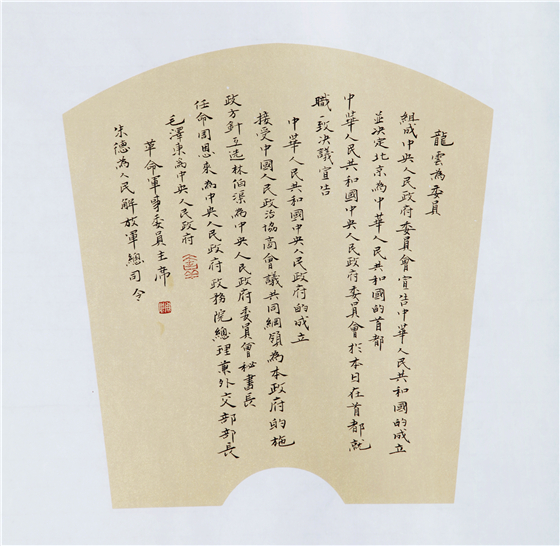 龍雲為委員
組成中央人民政府委員會宣告中華人民共和國的成立
並決定北京為中華人民共和國的首都
中華人民共和國中央人民政府委員會於本日在首都就
職一致決議宣告
中華人民共和國中央人民政府的成立
接受中國人民政治協商會議共同綱領為本政府的施
政方針互选林伯渠為中央人民政府委員會秘書長
任命周恩来為中央人民政府政務院總理兼外交部部長
毛澤東為中央人民政府
革命軍事委員主席
朱德為人民解放軍總司令